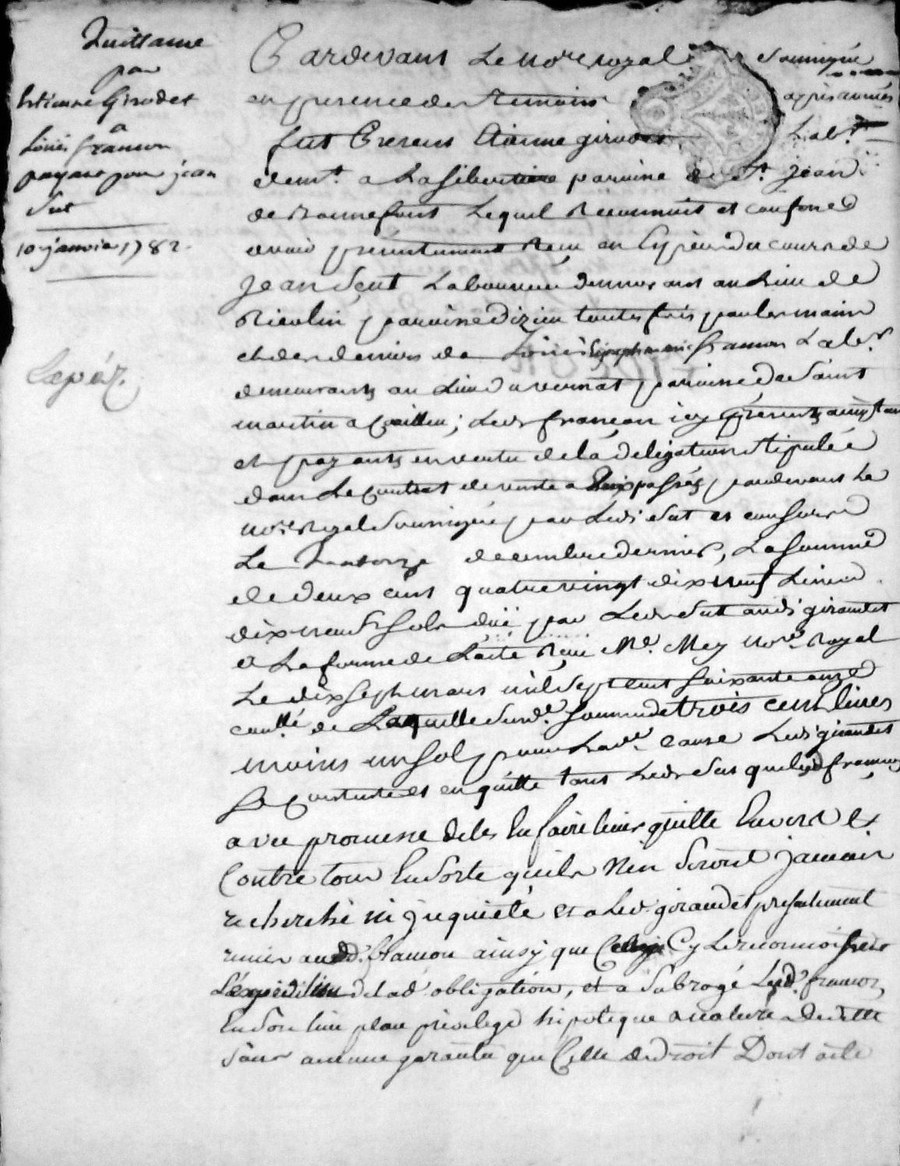 Quittance
par
Etienne Girodet
a
Louis framon
payant pour jean
Sut
10 janvier 1782
Expéz.
Pardevant Le no.re royal Soussigné
en presence des temoins après només
fut Present Etienne giraudet Lab.r
dem.t a La paroisse de S.t Jean
de Bonnefont Lequel Reconnoit et confesse
avoir presentement Reçu en Espèces du cours de
jean Sut Laboureur demeurant au Lieu de
paroisse d'izieu toutes fois par les mains
et des deniers de Louis framon Lab.r
demeurant au Lieu du vernat paroisse de Saint
martin a Coailleu; Led. framon icy présent acceptant
et payant en vertu de la délégation Stipulée
dans Le contrat de vente a passés pardevant Le
no.re Royal Soussigné par Led. Sut et consors
Le decembre dernier, La Somme
de deux cent quatre vingt dix neuf Livres
dix neuf Sols düe par Led. Sut aud. giraudet
a La forme de L'acte Reçu M.e Mey No.re Royal
Le dix Sept mars mil Sept cent Soixante onze
de Laquelle Sus d.e Somme de trois cent livres
moins un Sol pour Lad.e cause Led. giraudet
Se contente et en quitte tant Led. Sut que led. framon
avec promesse de les En faire tenir quitte Envers et
Contre tous En Sorte quils N'en Seront jamais
recherché ni jnquiété et a Led. giraudet presentement
remis aud. framon ainsy que Cy Le reconnoit
L'expédition de lad.e obligation, et a Subrogé Led. framon
En Son lieu place privilege hipoteque
Sans aucune garantie que Celle de droit Dont acte